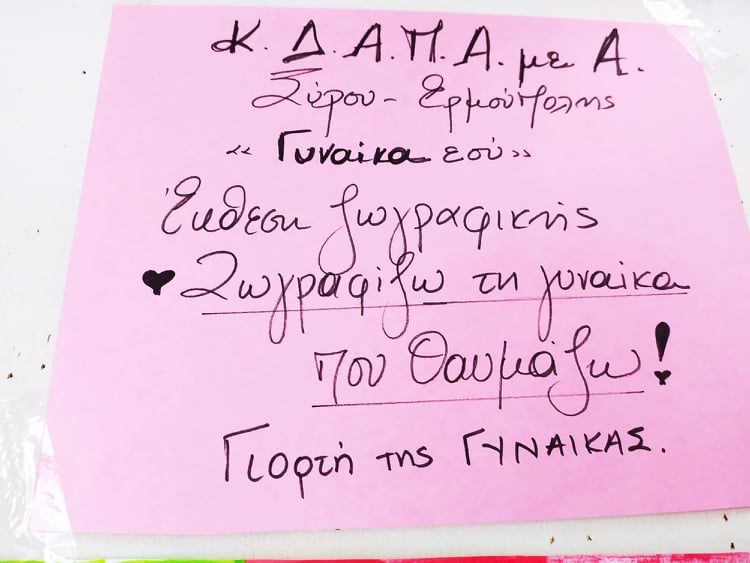 Κ. Δ. Α. Π. Α. με Α.
Σύρου - Ερμούπολης
« Γυναίκα εσύ »
Έκθεση ζωγραφικής
♥ Ζωγραφίζω τη γυναίκα
που θαυμάζω!
Γιορτή της ΓΥΝΑΙΚΑΣ.